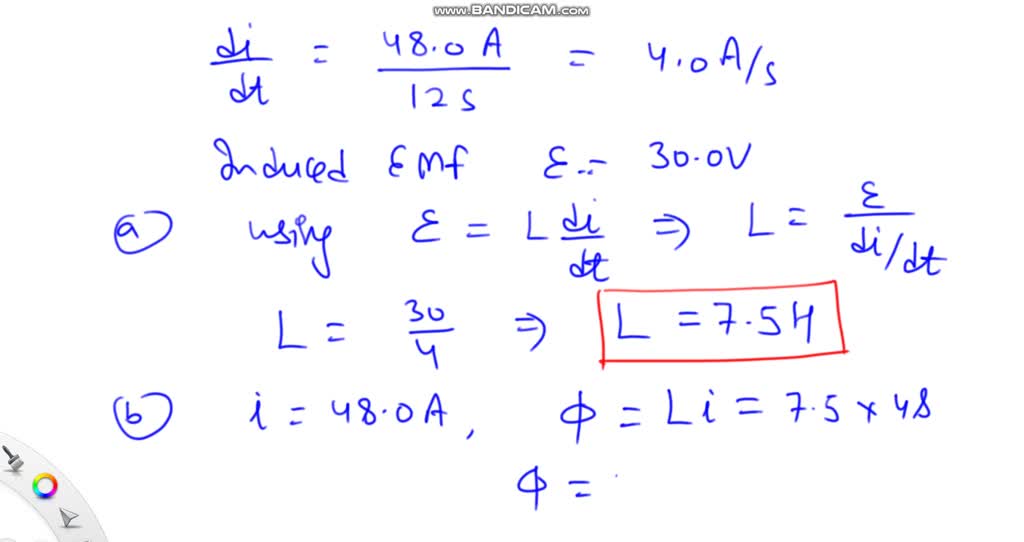 www.BANDICAM.com
di/dt = 48.0 A / 12 s = 4.0 A/s
Induced EMf ε = 30.0V
(a) using ε = L di/dt ⇒ L = ε / di/dt
L = 30/4 ⇒ L = 7.5H
(b) i = 48.0 A, φ = Li = 7.5 × 48
φ =